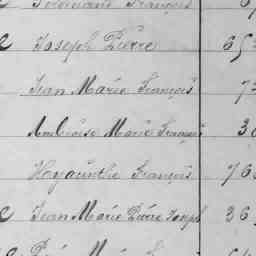 Ferdinand François 6
e Joseph Pierre 65
Jean Marie François 7
Ambroise Marie François 3
Hyacinthe François 76
e Jean Marie Pierre Joseph 26
Marie